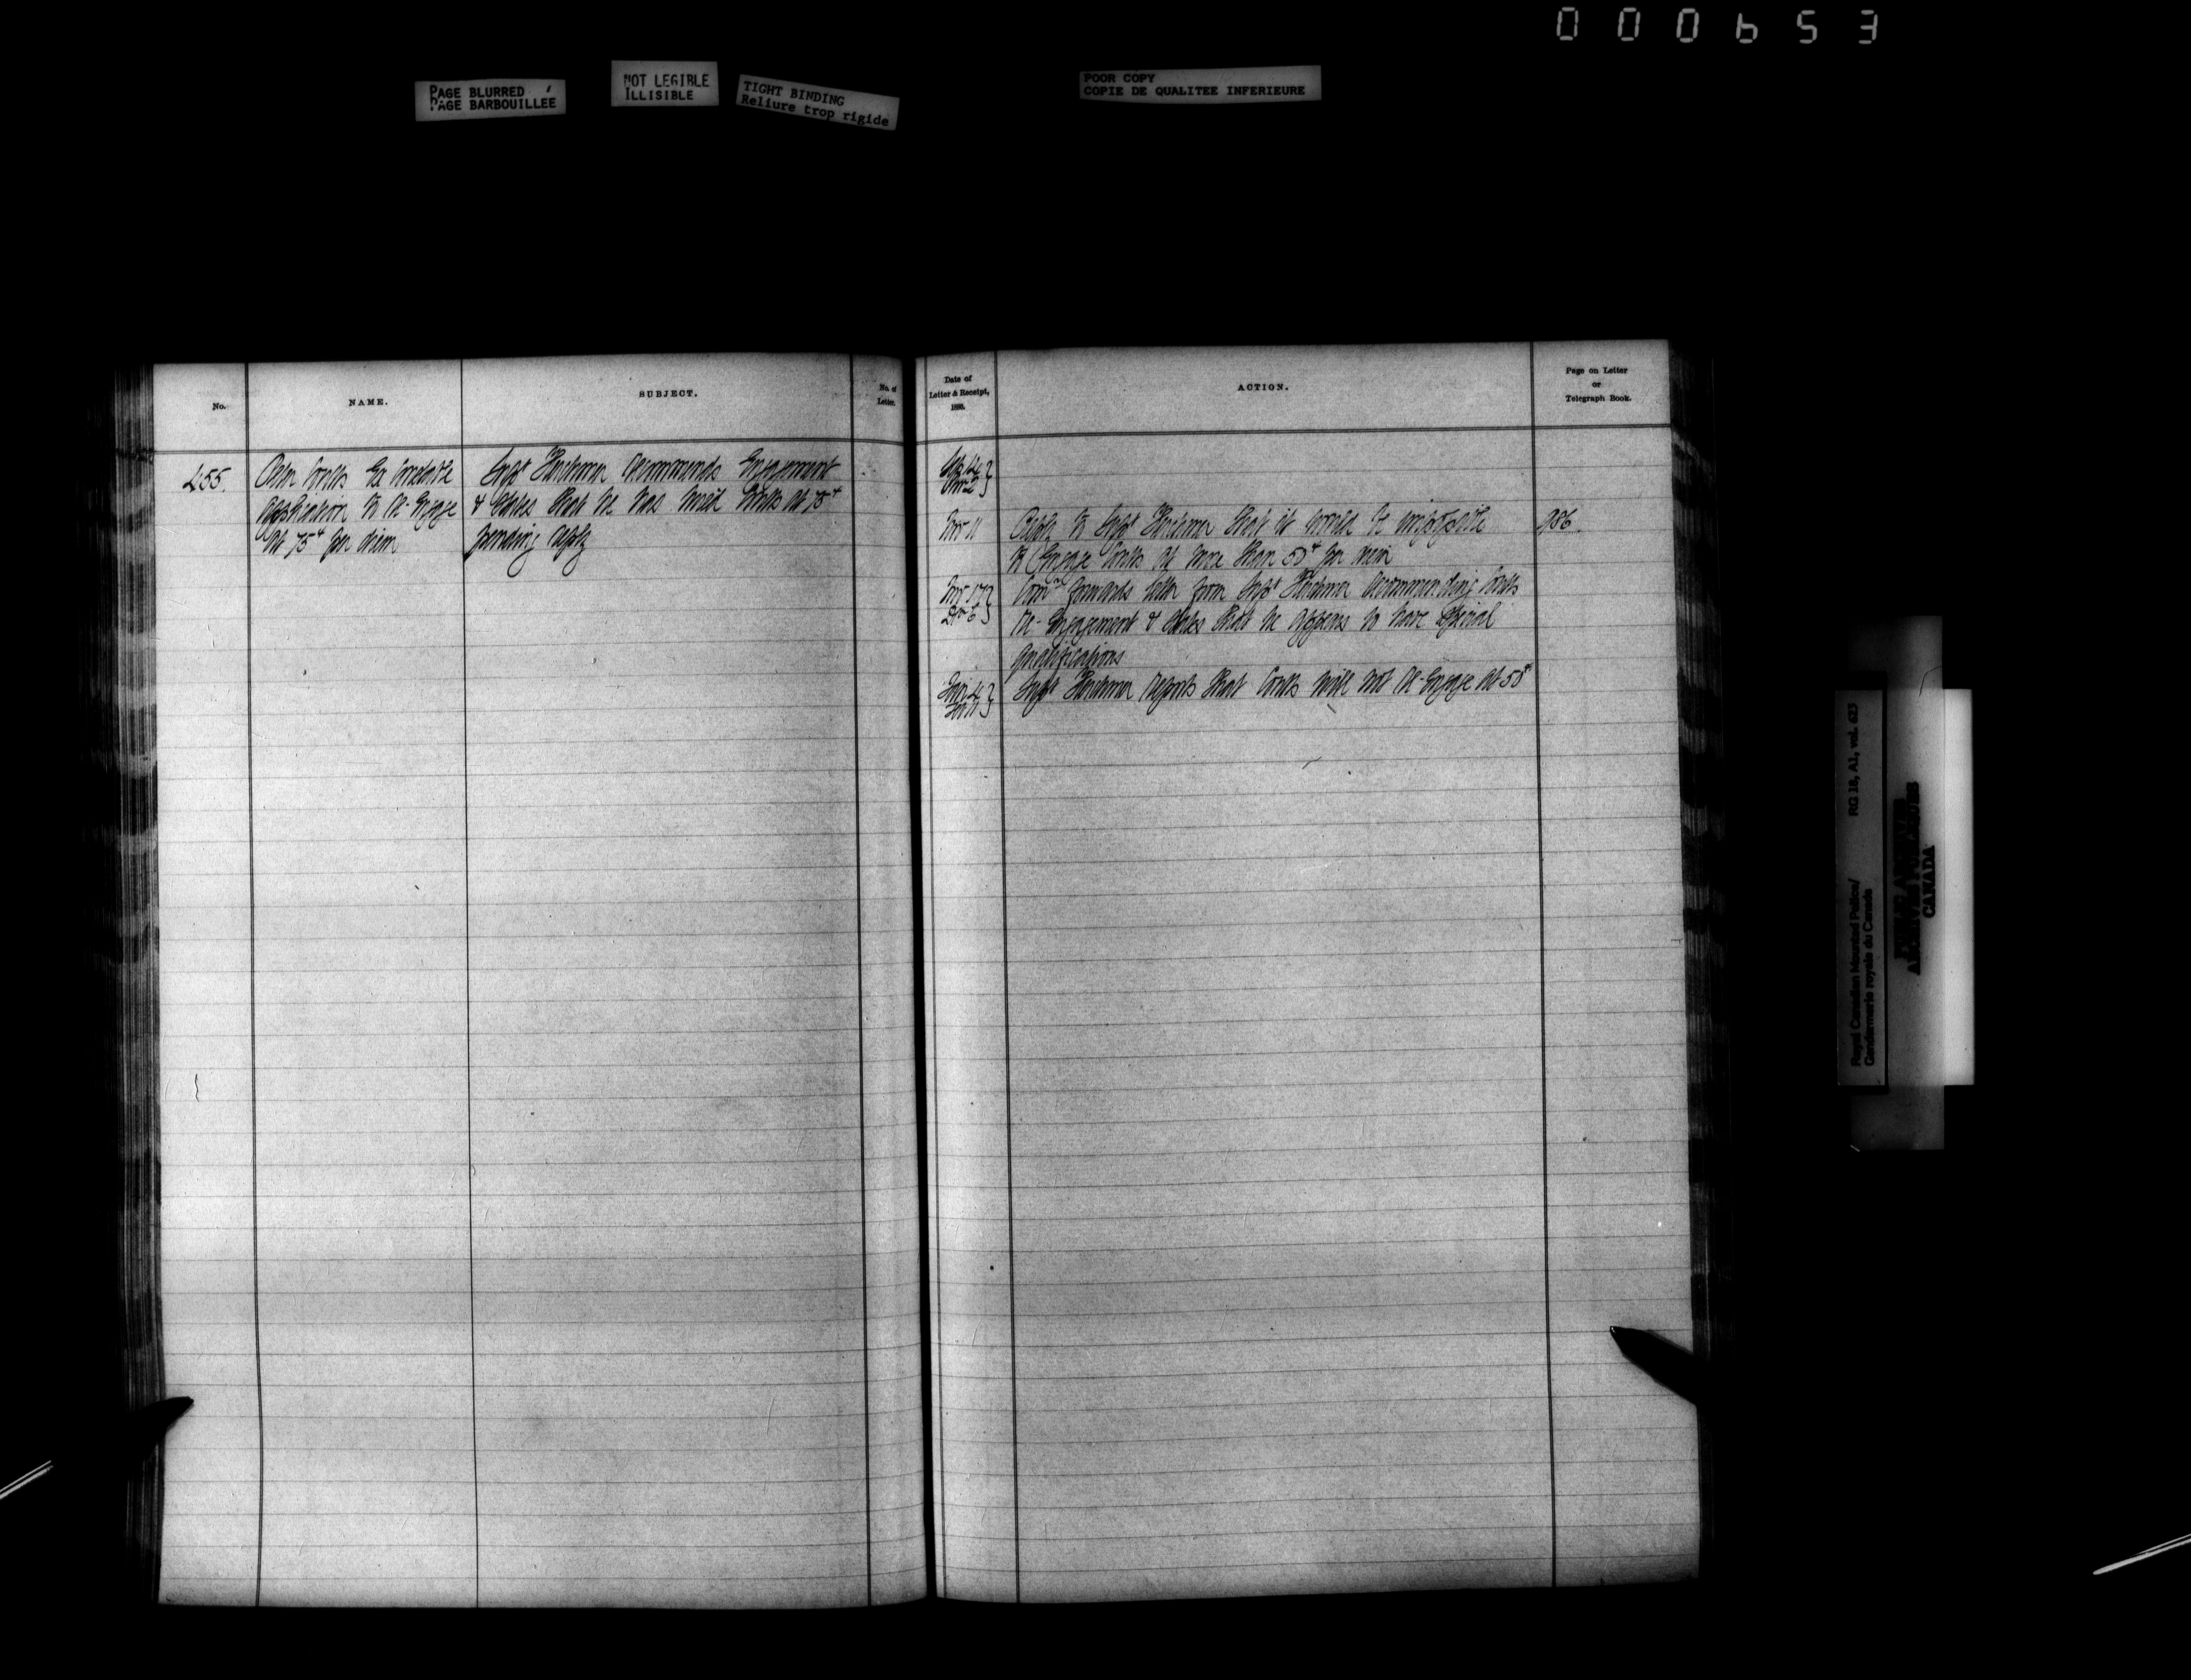 000653
PAGE BLURRED
PAGE BARBOUILLEE
NOT LEGIBLE
ILLISIBLE
TIGHT BINDING
Reliure trop rigide
POOR COPY
COPIE DE QUALITEE INFERIEURE
No.
NAME.
SUBJECT.
No. of
Letter.
455.
Ex Constable
Application to Re-Engage
at 75¢ per diem
Supt Herchmer recommends Engagement
& states that he has hired Coutts at 75¢
pending reply
Date of
Letter & Receipt,
1886.
ACTION.
Page on Letter
or
Telegraph Book.
Nov 11
Reply to Supt Herchmer that it would be impossible
to Engage Coutts at more than 50¢ per diem
986
Nov 17
Dec 6
Comr forwards letter from Supt Herchmer recommending Coutts
Re-Engagement & states that he appears to have special
qualifications
Supt Herchmer reports that Coutts will not Re-Engage at 50¢
Royal Canadian Mounted Police/
Gendarmerie royale du Canada
RG 18, A1, vol. 623
PUBLIC ARCHIVES
ARCHIVES PUBLIQUES
CANADA